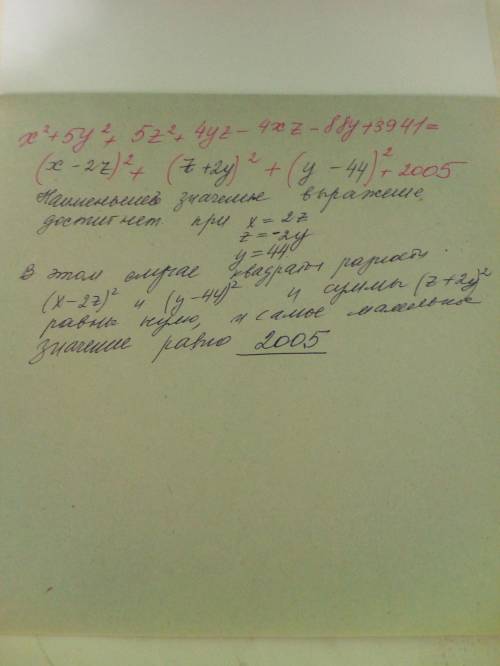 x² + 5y² + 5z² + 4yz - 4xz - 88y + 3941 =
(x - 2z)² + (z + 2y)² + (y - 44)² + 2005
Наименьшее значение выражение
достигнет при x = 2z
z = -2y
y = 44.
В этом случае квадраты разности
(x - 2z)² и (y - 44)² и суммы (z + 2y)²
равны нулю, и самое маленькое
значение равно 2005